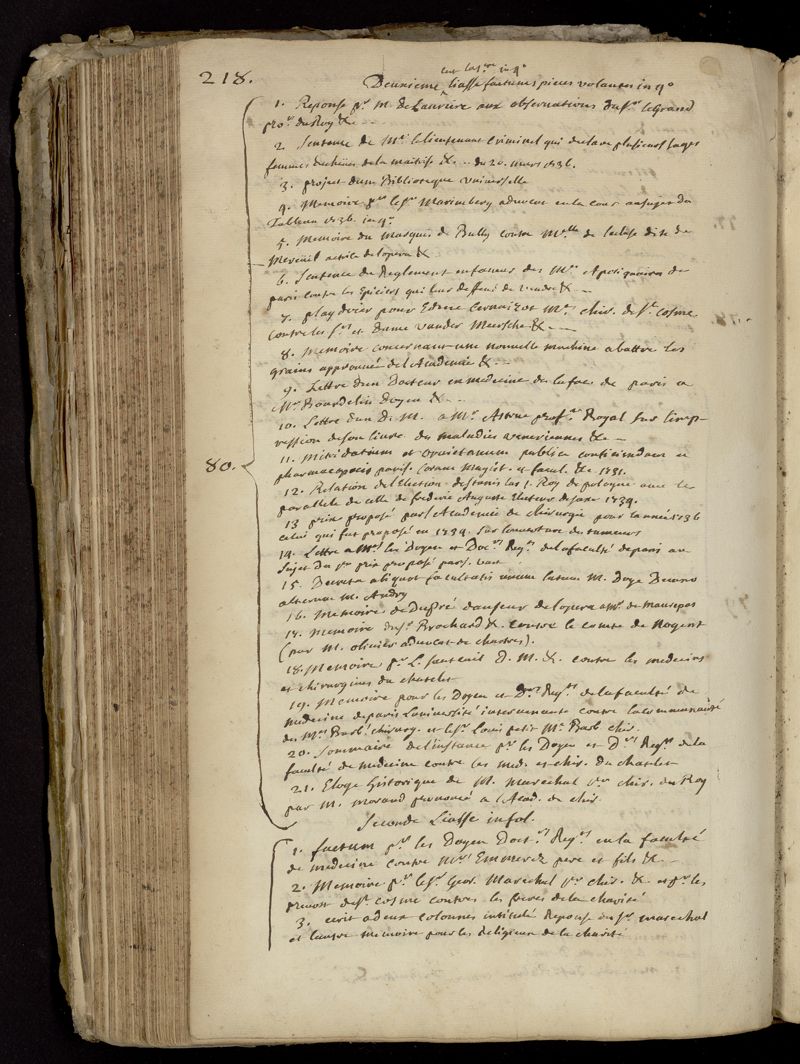 218.
in 4°
Deuxieme liasse factums pieces volantes in 4°
1. Reponse pr. M. de Lauriere aux observations du Sr. le Grand
pro.r du Roy &c. --
2. Sentence de Mr. le lieutenant Criminel qui declare plusieurs sages
femmes dechues de la maitrise &c. -- du 20. mars 1736.
3. projet d'une Biblioteque universelle
4. Memoire pr. le Sr. advocat en la cour au sujet du
Tableau 1736. in 4°
5. Memoire du Marquis de Bully contre Mlle. de dite de
actrice de l'opera &c
6. Sentence de Reglement en faveur des Mrs. Apotiquaires de
paris contre les Epiciers qui leur deffend de vendre &c --
7. playdoier pour Edme Mr. chir. de St. Cosme
contre les Srs. et Dame vander Meersche &c --
8. Memoire concernant une nouvelle machine a battre les
grains approuvée de l'Academie &c --
9. Lettre d'un Docteur en medecine de la fac. de paris a
Mr. Bourdelin Doyen &c --
10. Lettre d'un D. M. a Mr. Astruc prof.r Royal sur l'imp-
ression de son livre des maladies veneriennes &c --
11. Mitridatium et orvietanum publice conficiendum a
pharmacopaeis paris. coram Magist. et facul. &c 1731.
12. Relation de l'Election de Stanislas 1. Roy de pologne avec le
parallele de celle de frederic Auguste Electeur de Saxe 1734.
13 prix proposé par l'Academie de chirurgie pour l'année 1736
celui qui fut proposé en 1734. sur l'ouverture des tumeurs
14. Lettre a Mrs. les Doyen et Doc.rs Reg.ts de la faculté de paris au
sujet du pr. prix proposé par
15. Decreta aliquot facultatis unum latum M. Doye Decano
alterum M. Andry
16. Memoire de Dupré danseur de l'opera a Mr. de Maurepas
17. Memoire du Sr. Brochard &c. contre le comte de Nogent
(par M. olivier advocat de chartres).
18. Memoire pr. L. Santeuil D. M. &c. contre les medecins
et chirurgiens du chatelet
19. Memoire pour les Doyen et D.rs Reg.ts de la faculté de
medecine de paris l'université intervenante contre la communauté
des Mrs. Barb. chirurg. et le Sr. Louis petit Mr. Barb. chir.
20. Sommaire de l'instance pr. les Doyen et D.rs Reg.ts de la
faculté de medecine contre les med. et chir. du chatelet
21. Eloge historique de M. Mareschal 1er. chir. du Roy
par M. Morand prononcé a l'Acad. de chir.
80.
Seconde Liasse in fol.
1. factum pr. les Doyen Doct.rs Reg.ts en la faculté
de medecine contre Mrs. Emmerez pere et fils &c. --
2. Memoire pr. le Sr. Geor. Marechal 1er. chir. &c. et pr. les
prevost de St. cosme contre les freres de la charité
3. ecrit a deux colonnes intitulé Reponse du Sr. marechal
et l'autre memoire pour les Religieux de la charité